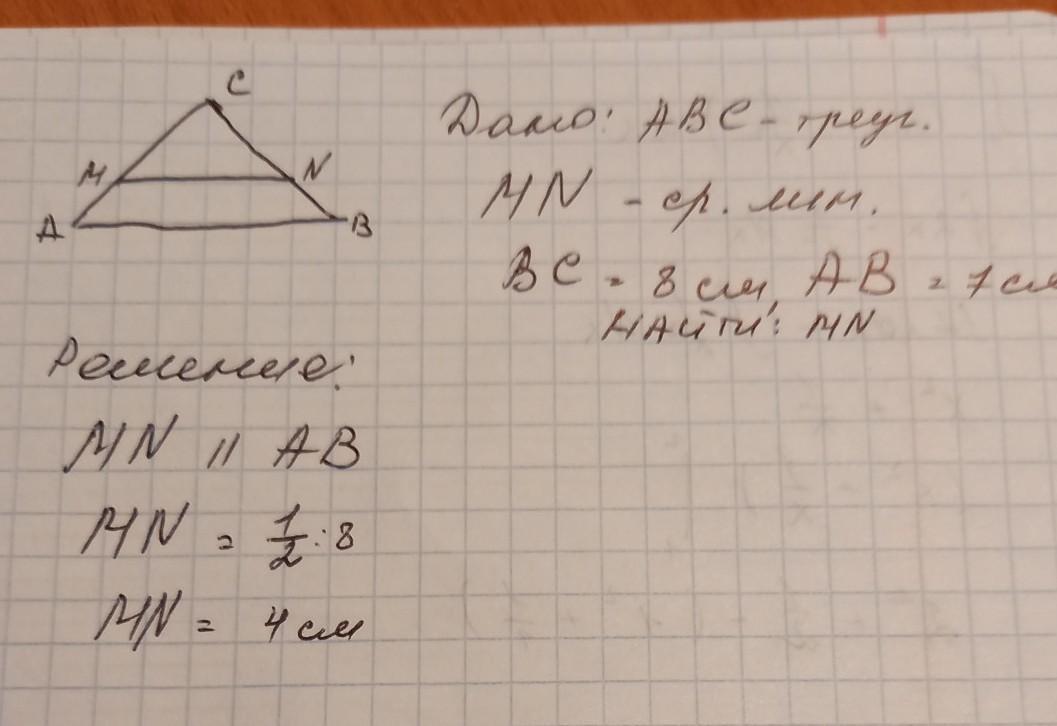 C
M N
A B
Дано: ABC - треуг.
MN - ср. лин.
BC = 8 см, AB = 7 см
НАЙТИ: MN
Решение:
MN || AB
MN = 1/2 : 8
MN = 4 см